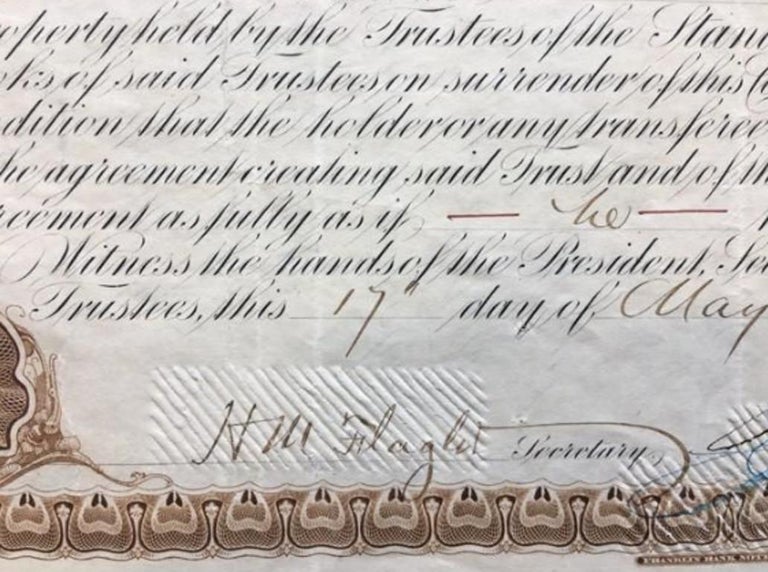 operty hold by the Trustees of the Stan
ks of said Trustees on surrender of this
dition that the holder or any transferee
he agreement creating said Trust and of th
reement as fully as if — he —
Witness the hands of the President, Se
Trustees, this 17" day of May
H M Flagler Secretary,
FRANKLIN BANK NOTE